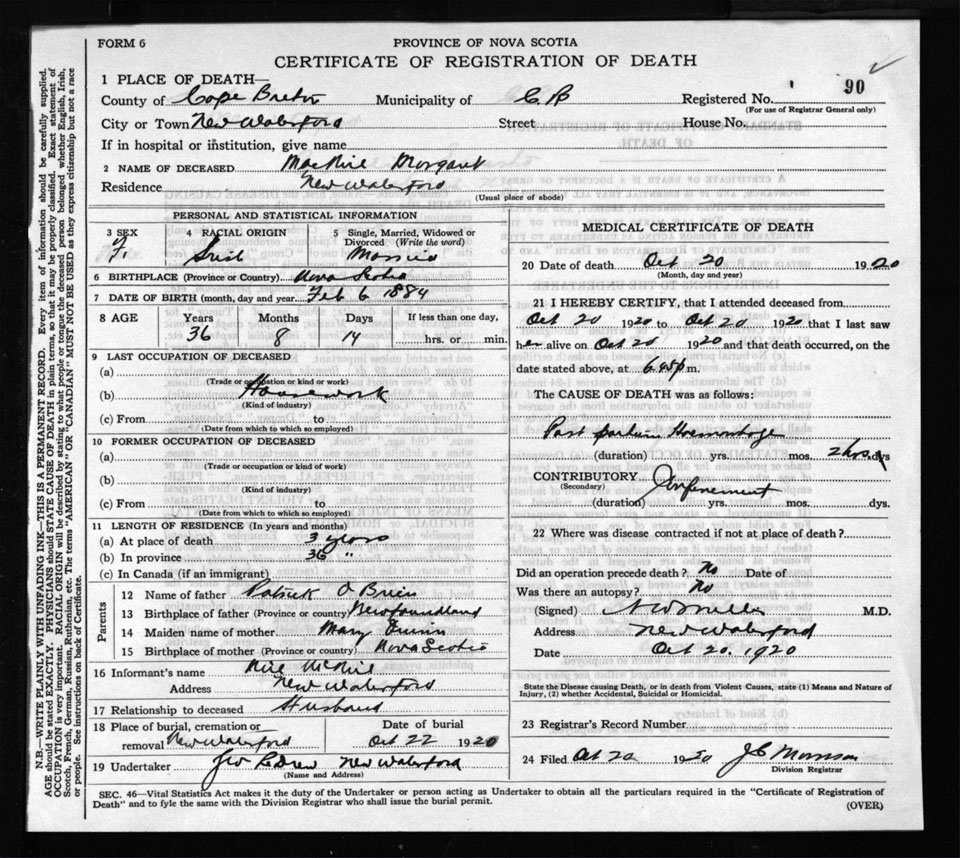 FORM 6
PROVINCE OF NOVA SCOTIA
CERTIFICATE OF REGISTRATION OF DEATH
90
1 PLACE OF DEATH—
County of Cape Breton Municipality of C B Registered No.
(For use of Registrar General only)
City or Town New Waterford Street House No.
If in hospital or institution, give name
2 NAME OF DECEASED Margaret
Residence New Waterford
(Usual place of abode)
PERSONAL AND STATISTICAL INFORMATION
3 SEX 4 RACIAL ORIGIN 5 Single, Married, Widowed or Divorced (Write the word)
F. Irish Married
6 BIRTHPLACE (Province or Country) Nova Scotia
7 DATE OF BIRTH (month, day and year) Feb 6 1884
8 AGE Years Months Days If less than one day,
36 8 14 hrs. or min.
9 LAST OCCUPATION OF DECEASED
(a)
(Trade or occupation or kind or work)
(b) Housework
(Kind of industry)
(c) From to
(Date from which to which so employed)
10 FORMER OCCUPATION OF DECEASED
(a)
(Trade or occupation or kind of work)
(b)
(Kind of industry)
(c) From to
(Date from which to which so employed)
11 LENGTH OF RESIDENCE (In years and months)
(a) At place of death 3 years
(b) In province 36 "
(c) In Canada (if an immigrant)
Parents
12 Name of father Patrick O Brien
13 Birthplace of father (Province or country) Newfoundland
14 Maiden name of mother Mary
15 Birthplace of mother (Province or country) Nova Scotia
16 Informant's name
Address New Waterford
17 Relationship to deceased Husband
18 Place of burial, cremation or removal New Waterford Date of burial Oct 22 1920
19 Undertaker New Waterford
(Name and Address)
MEDICAL CERTIFICATE OF DEATH
20 Date of death Oct 20 1920
(Month, day and year)
21 I HEREBY CERTIFY, that I attended deceased from
Oct 20 1920 to Oct 20 1920 that I last saw
her alive on Oct 20 1920 and that death occurred, on the
date stated above, at 6.45 p m.
The CAUSE OF DEATH was as follows:
Post partum Haemorrhage
(duration) yrs. mos. 2 hrs. dys
CONTRIBUTORY Confinement
(Secondary)
(duration) yrs. mos. dys.
22 Where was disease contracted if not at place of death?
Did an operation precede death? No Date of
Was there an autopsy? No
(Signed) M.D.
Address New Waterford
Date Oct 20. 1920
State the Disease causing Death, or in death from Violent Causes, state (1) Means and Nature of
Injury, (2) whether Accidental, Suicidal or Homicidal.
23 Registrar's Record Number
24 Filed Oct 1920 Morrison
Division Registrar
SEC. 46—Vital Statistics Act makes it the duty of the Undertaker or person acting as Undertaker to obtain all the particulars required in the "Certificate of Registration of
Death" and to fyle the same with the Division Registrar who shall issue the burial permit.
(OVER)
N.B.—WRITE PLAINLY WITH UNFADING INK—THIS IS A PERMANENT RECORD. Every item of information should be carefully supplied.
AGE should be stated EXACTLY. PHYSICIANS should STATE CAUSE OF DEATH in plain terms, so that it may be properly classified. Exact statement of
OCCUPATION is very important. RACIAL ORIGIN will be described by stating to what people or tongue the deceased person belonged, whether English, Irish,
Scotch, French, German, Russian, Ruthenian, etc. The terms "AMERICAN" OR "CANADIAN" MUST NOT BE USED as they express citizenship but not a race
or people. See instructions on back of Certificate.